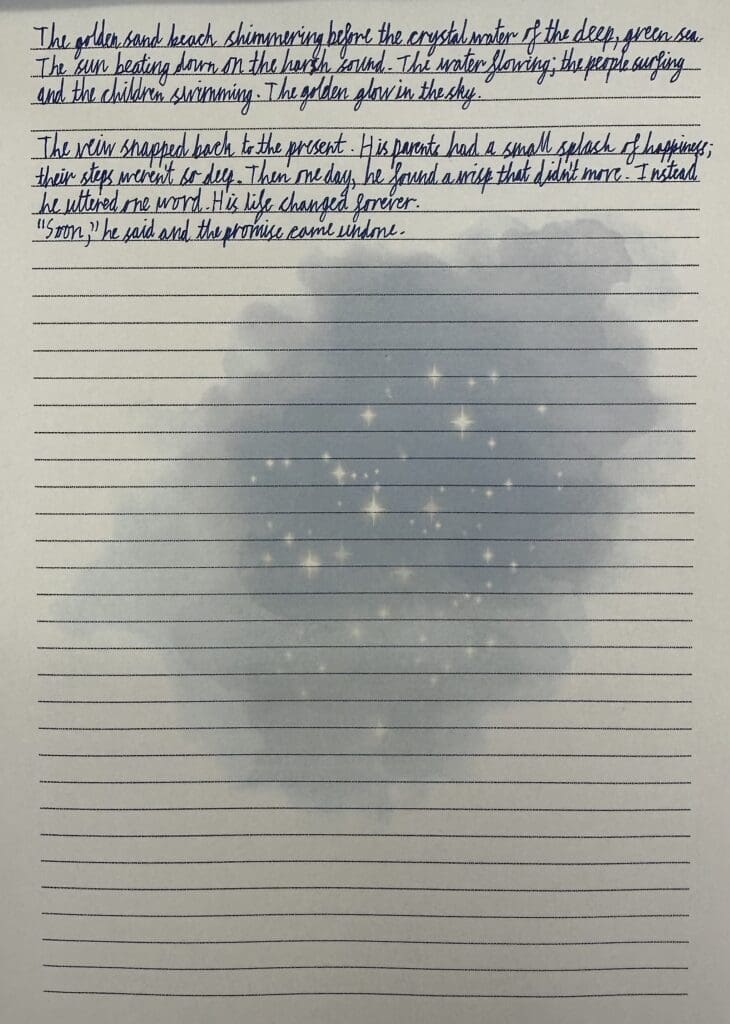 The golden sand beach shimmering before the crystal water of the deep, green sea.
The sun beating down on the harsh sound. The water flowing; the people surfing
and the children swimming. The golden glow in the sky.
The veiw snapped back to the present. His parents had a small splash of happiness;
their steps weren't so deep. Then one day, he found a wisp that didn't move. Instead
he uttered one word. His life changed forever.
"Soon," he said and the promise came undone.